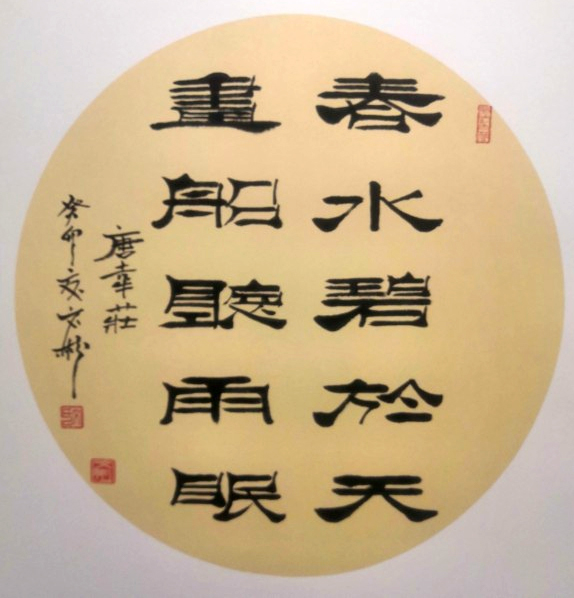 春水碧於天
畫船聽雨眠
唐韋莊
癸卯